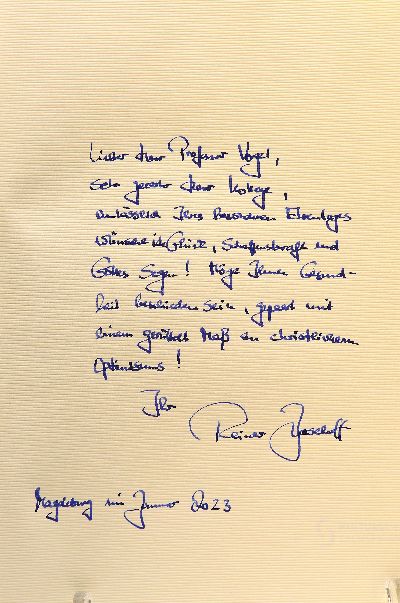 Lieber Herr Professor Vogel,
sehr geehrter Herr Kollege,
anlässlich Ihres besonderen Ehrentages
wünsche ich Glück, Schaffenskraft und
Gottes Segen! Möge Ihnen Gesund-
heit beschieden sein, gepaart mit
einem gerüttelt Maß an christlichem
Optimismus!
Ihr
Reiner
Magdeburg im Januar 2023